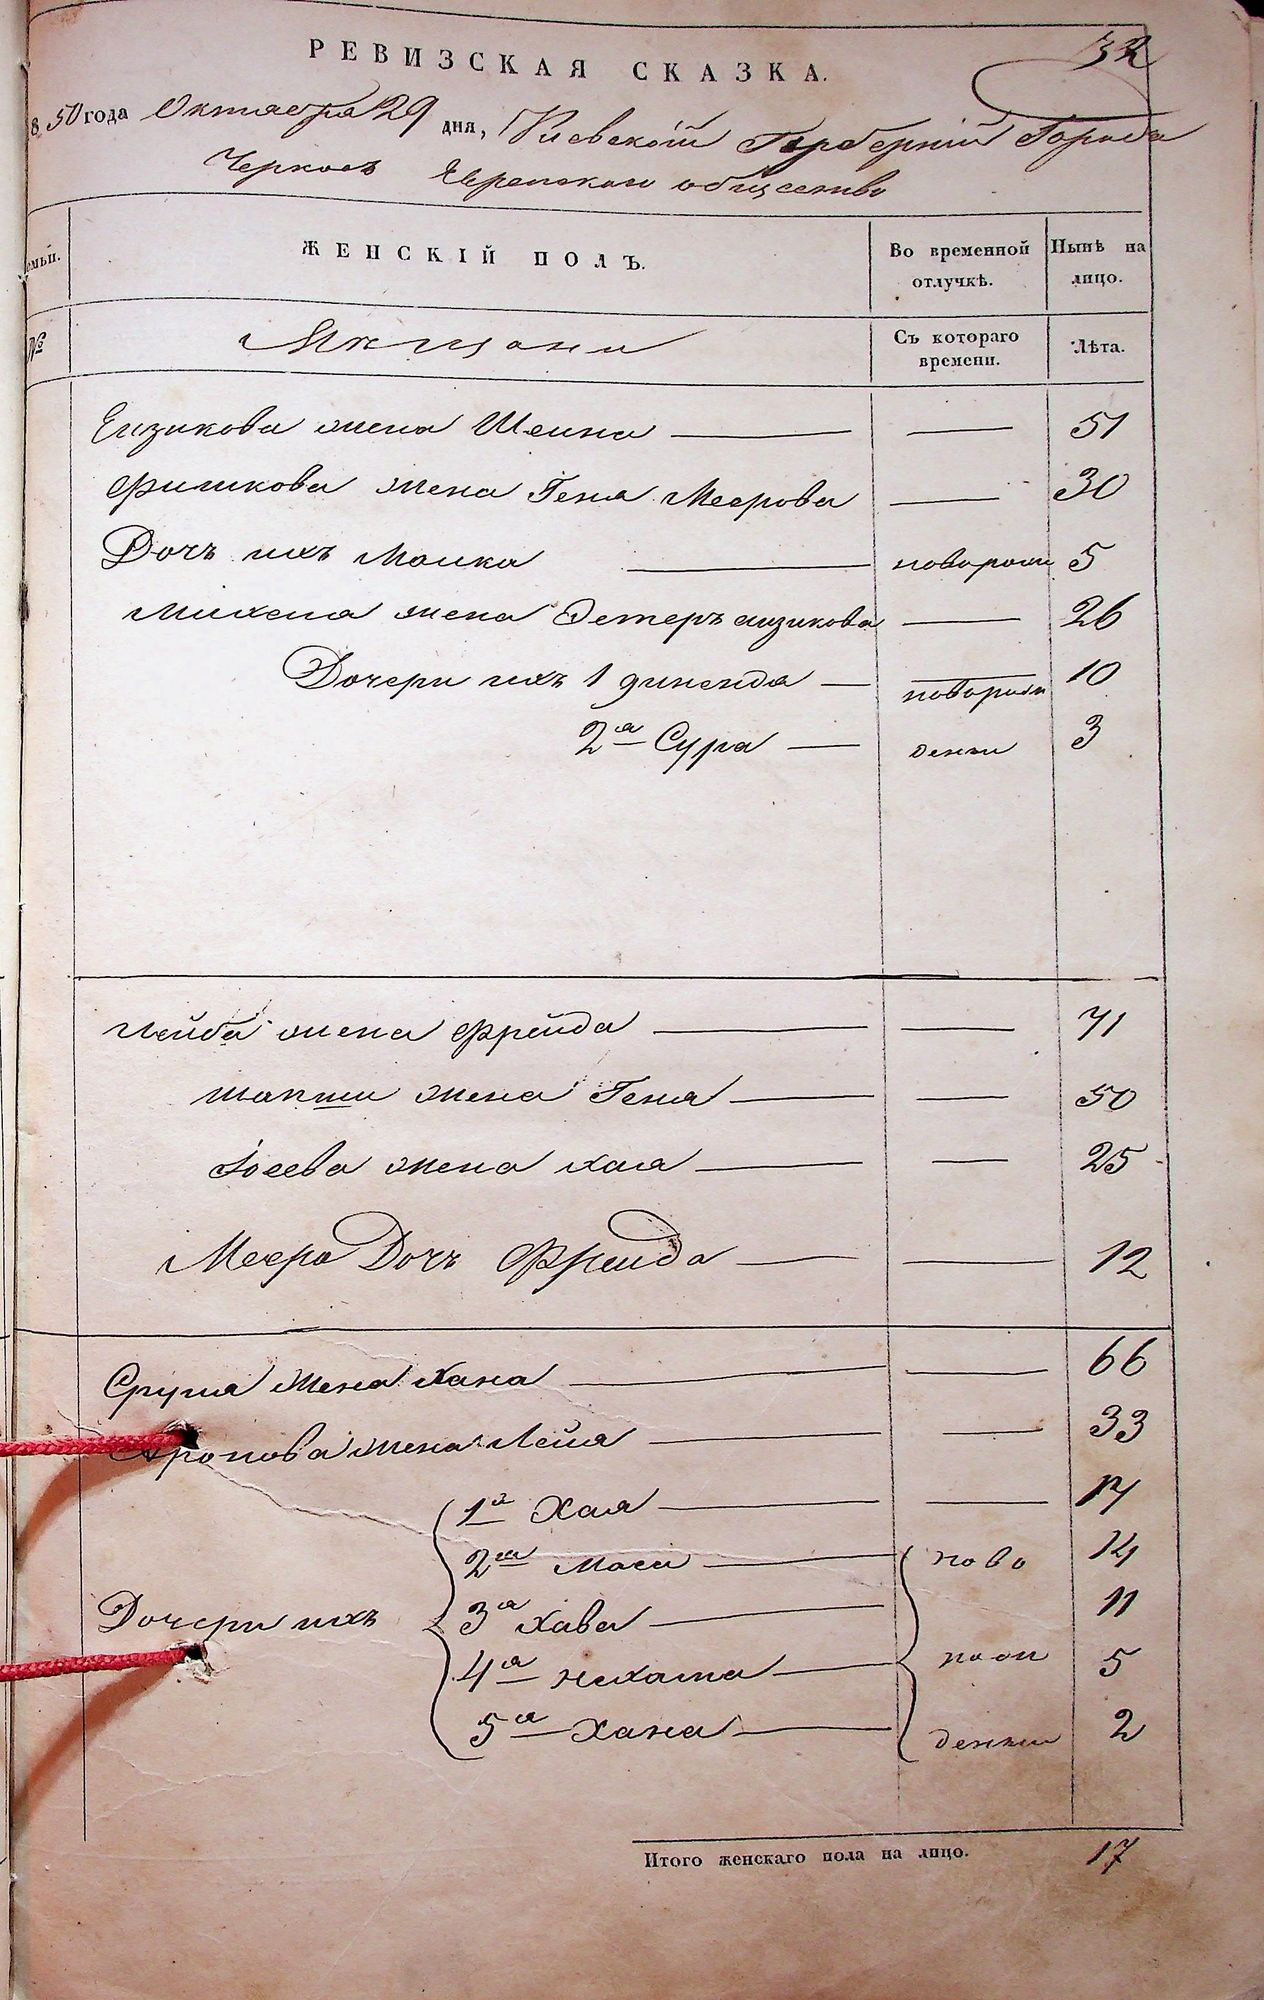 32
РЕВИЗСКАЯ СКАЗКА.
8 50 года Октября 29 дня, Киевской Губерніи Города
Черкас Еврейскаго общества
емьи.
ЖЕНСКІЙ ПОЛЪ.
Во временной отлучкѣ.
Нынѣ на лицо.
№
Мещани
Съ котораго времени.
Лѣта.
Еизикова жена Шеина — — 51
Фишкова жена Геня Меерова — 30
Дочъ ихъ Малка — новорож 5
Михела жена Эстеръ аизикова — 26
Дочери ихъ 1 — новорож 10
2я Сура — денни 3
Лейба жена Фрейда — — 71
шапши жена Геня — — 50
Іосева жена хая — — 25
Меера Дочъ Фреида — — 12
Сруля жена Хана — — 66
Аронова жена Лейя — — 33
Дочери ихъ
1я Хая — — 17
2я Маси — ново 14
3я Хава — 11
4я нехама — 5
5я Хана — денни 2
Итого женскаго пола на лицо. 17